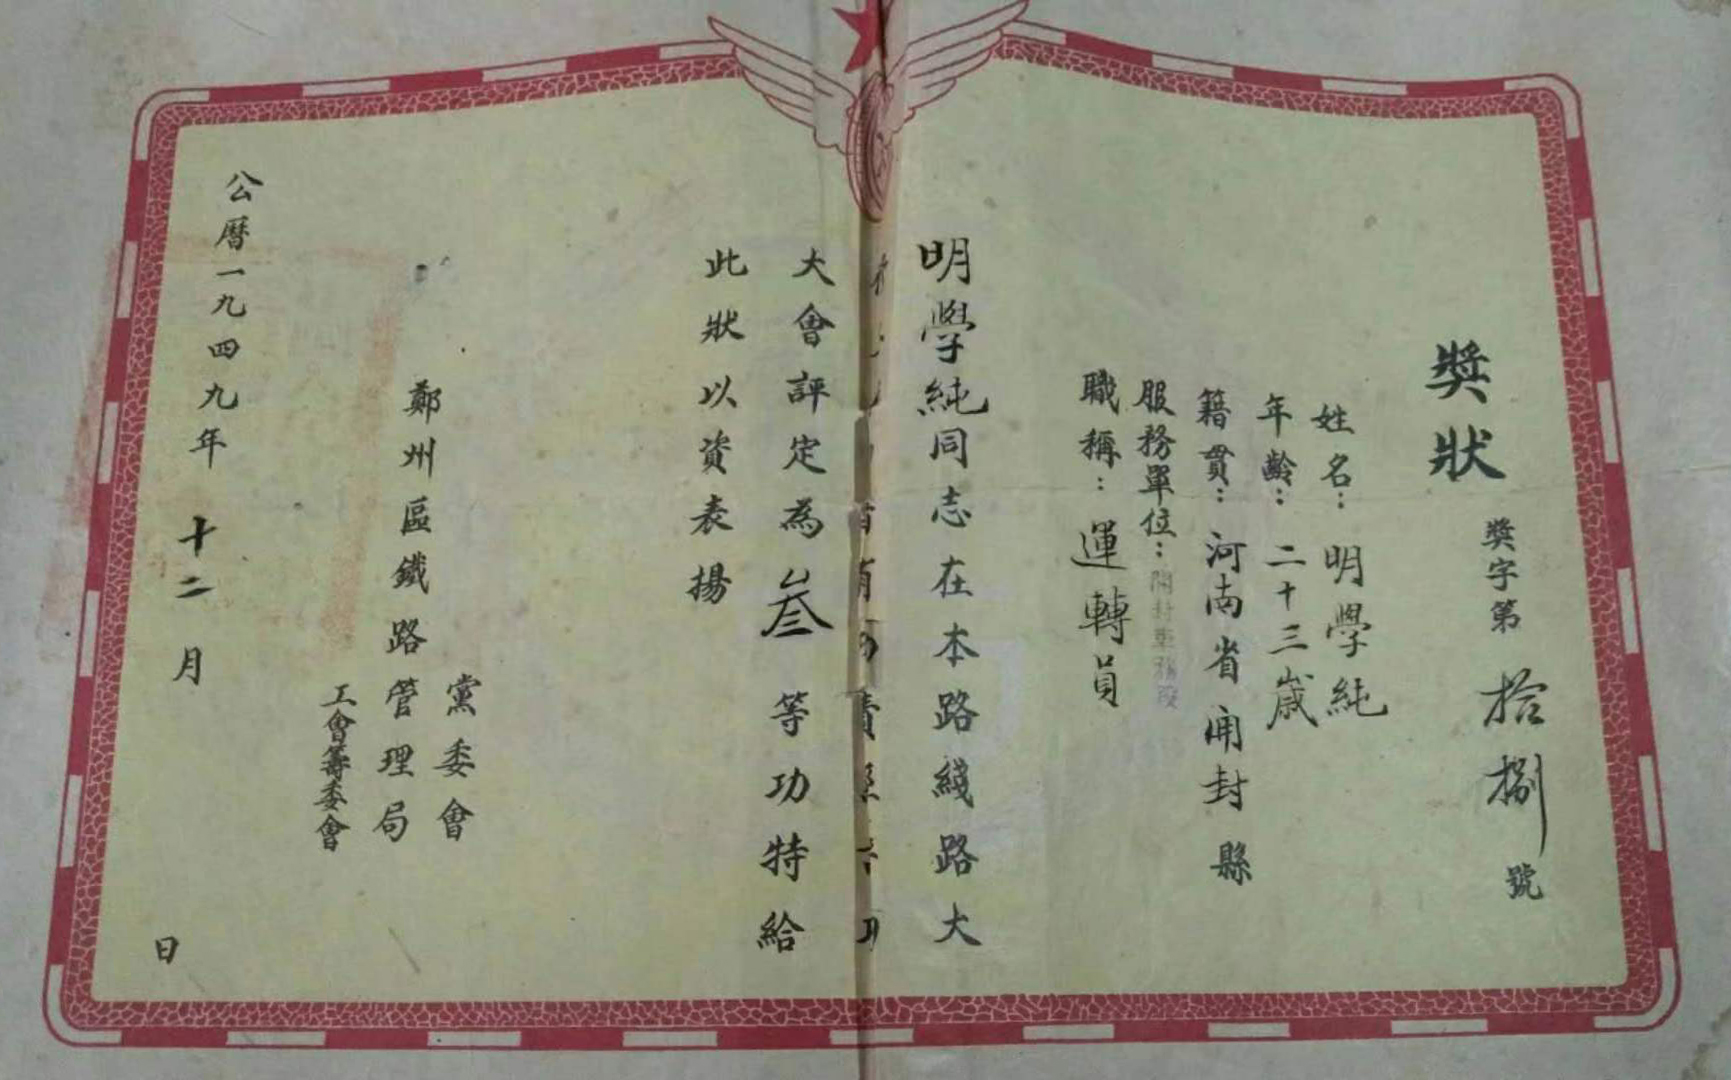 獎狀
獎字第拾捌號
姓名：明學純
年齡：二十三歲
籍貫：河南省開封縣
服務單位：開封車務段
職稱：運轉員
明學純同志在本路綫路大
大會評定為叁等功特給
此狀以資表揚
黨委會
鄭州區鐵路管理局
工會籌委會
公曆一九四九年十二月 日